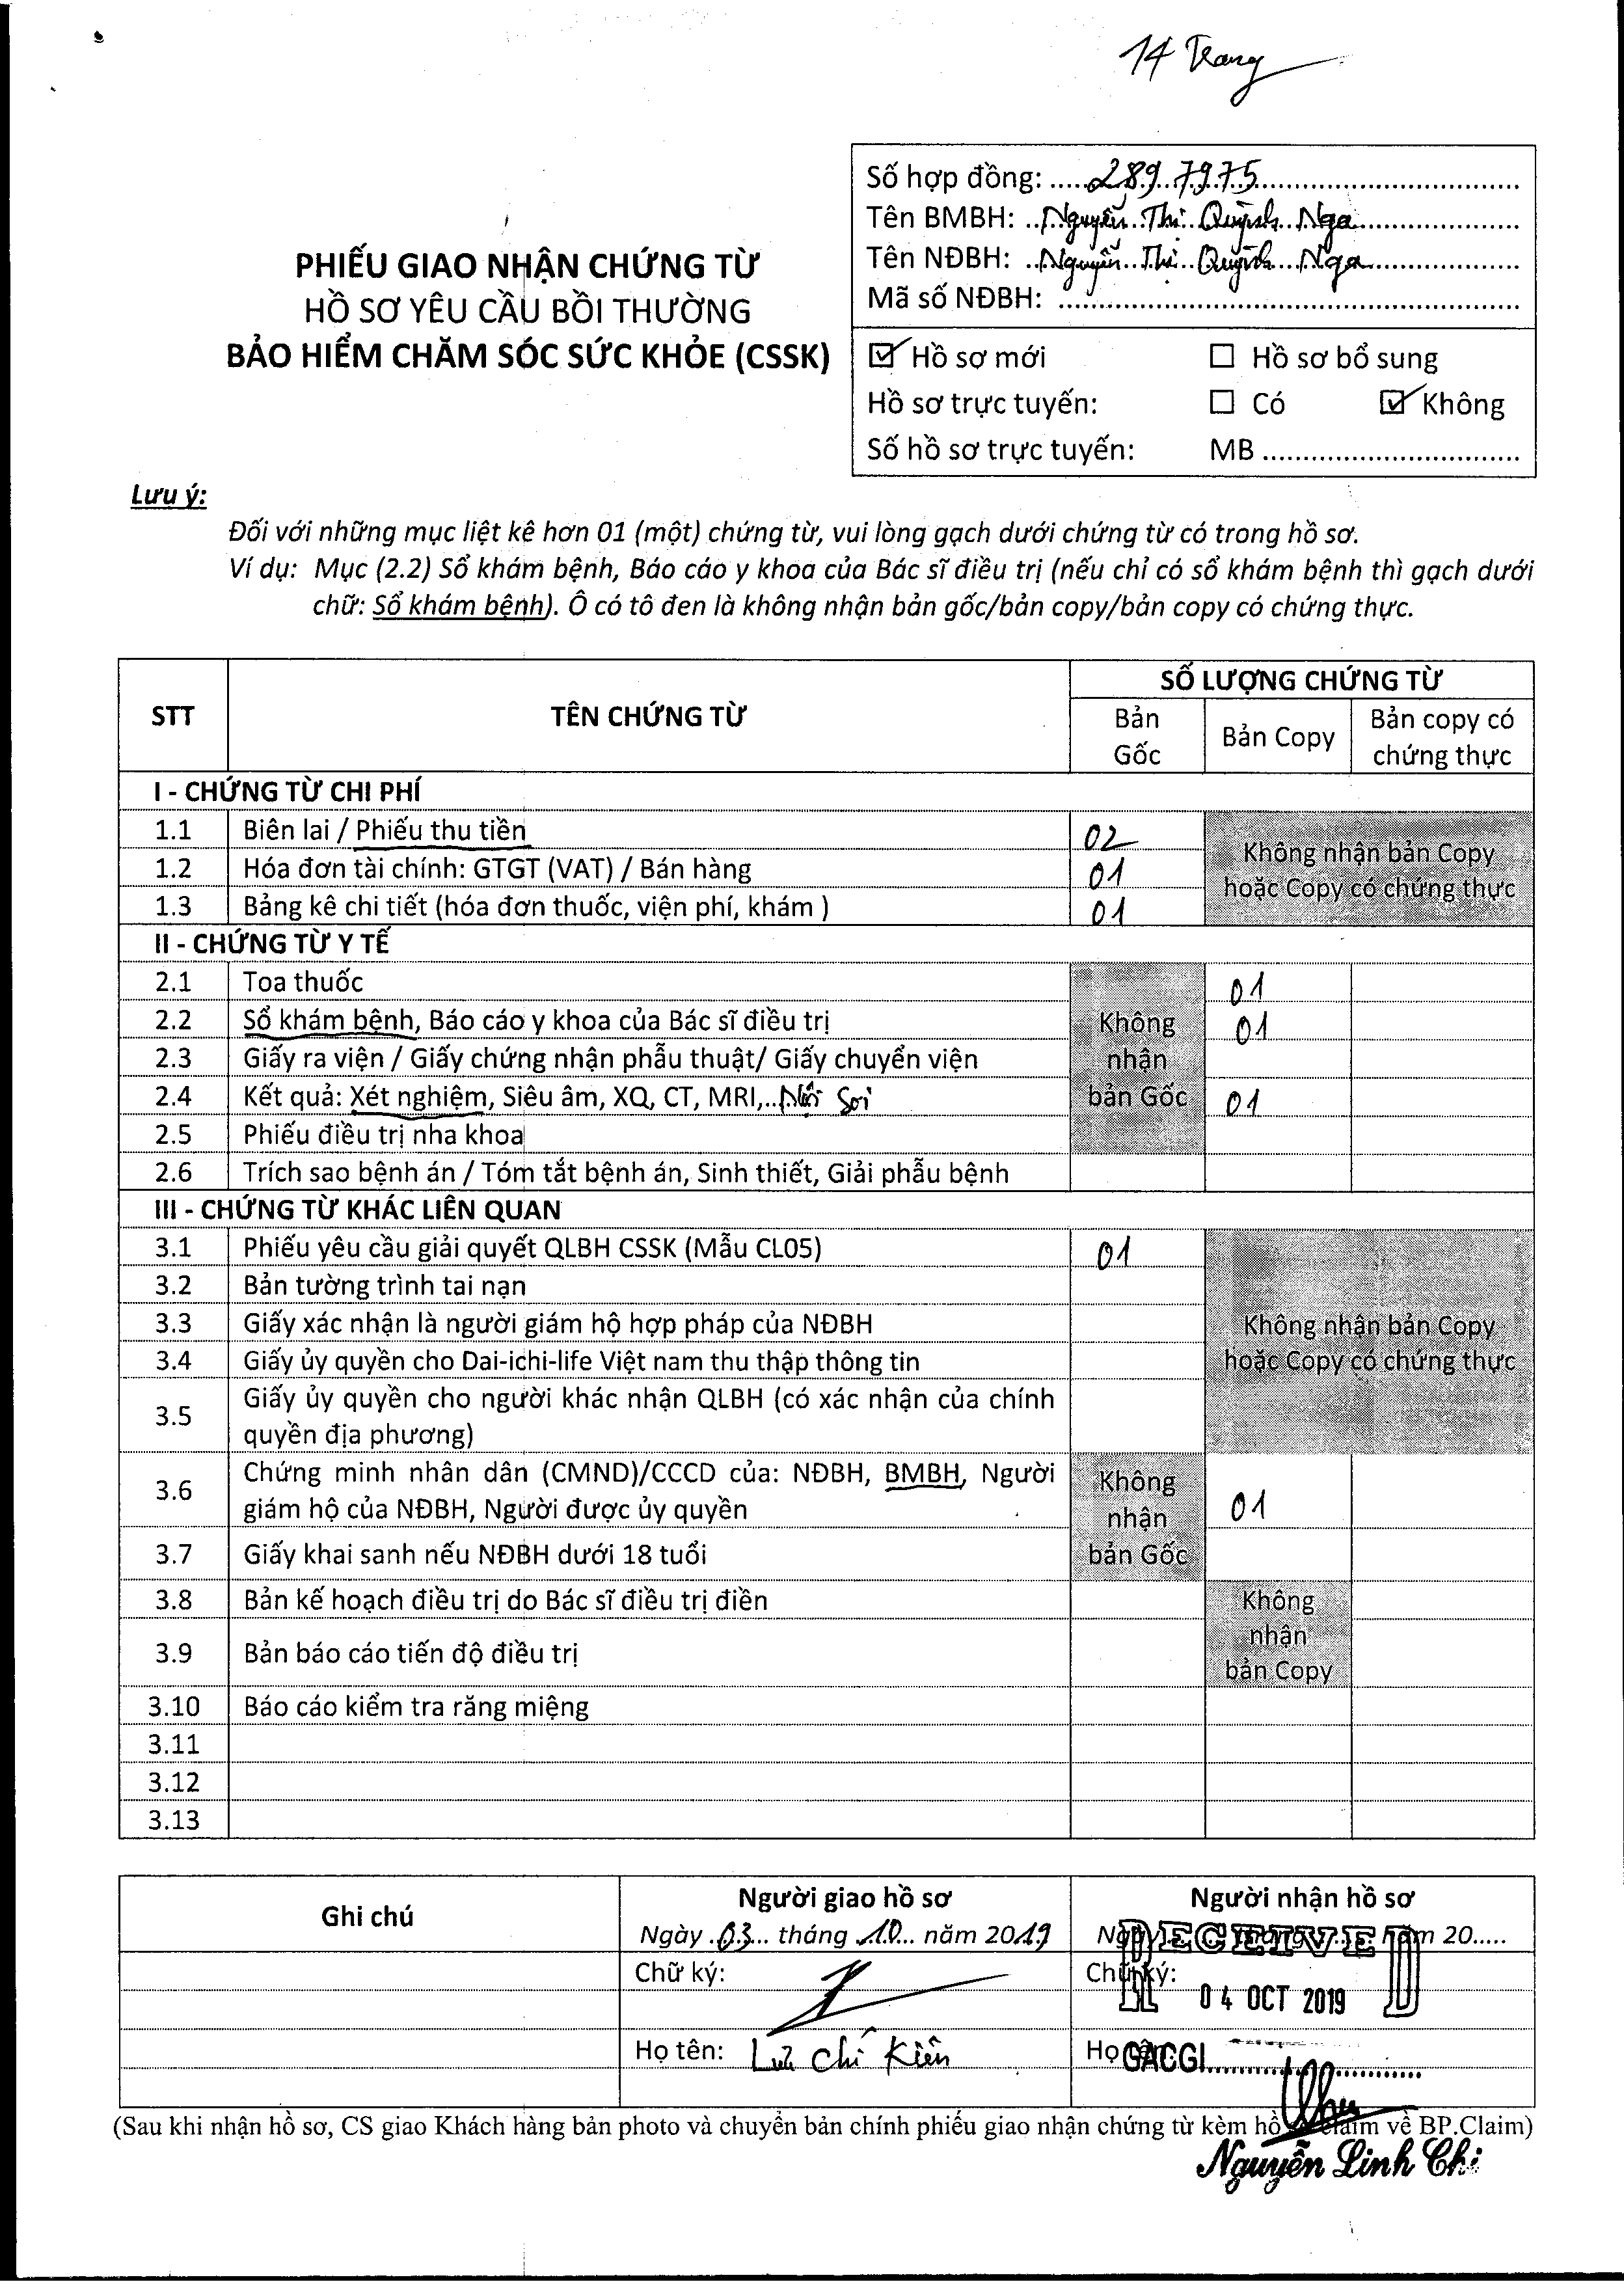 14 Trang
Số hợp đồng: .....2897975.....
Tên BMBH: ..Nguyễn Thị Quỳnh Nga.....
Tên NĐBH: ..Nguyễn Thị Quỳnh Nga.....
Mã số NĐBH: .....
PHIẾU GIAO NHẬN CHỨNG TỪ
HỒ SƠ YÊU CẦU BỒI THƯỜNG
BẢO HIỂM CHĂM SÓC SỨC KHỎE (CSSK)
☑ Hồ sơ mới ☐ Hồ sơ bổ sung
Hồ sơ trực tuyến: ☐ Có ☑ Không
Số hồ sơ trực tuyến: MB .....
Lưu ý:
Đối với những mục liệt kê hơn 01 (một) chứng từ, vui lòng gạch dưới chứng từ có trong hồ sơ.
Ví dụ: Mục (2.2) Sổ khám bệnh, Báo cáo y khoa của Bác sĩ điều trị (nếu chỉ có sổ khám bệnh thì gạch dưới
chữ: Sổ khám bệnh). Ô có tô đen là không nhận bản gốc/bản copy/bản copy có chứng thực.
STT TÊN CHỨNG TỪ SỐ LƯỢNG CHỨNG TỪ
Bản Gốc Bản Copy Bản copy có chứng thực
I - CHỨNG TỪ CHI PHÍ
1.1 Biên lai / Phiếu thu tiền 02
1.2 Hóa đơn tài chính: GTGT (VAT) / Bán hàng 01
1.3 Bảng kê chi tiết (hóa đơn thuốc, viện phí, khám ) 01
Không nhận bản Copy
hoặc Copy có chứng thực
II - CHỨNG TỪ Y TẾ
2.1 Toa thuốc 01
2.2 Sổ khám bệnh, Báo cáo y khoa của Bác sĩ điều trị 01
2.3 Giấy ra viện / Giấy chứng nhận phẫu thuật/ Giấy chuyển viện
2.4 Kết quả: Xét nghiệm, Siêu âm, XQ, CT, MRI,..Nội Soi 01
2.5 Phiếu điều trị nha khoa
2.6 Trích sao bệnh án / Tóm tắt bệnh án, Sinh thiết, Giải phẫu bệnh
Không
nhận
bản Gốc
III - CHỨNG TỪ KHÁC LIÊN QUAN
3.1 Phiếu yêu cầu giải quyết QLBH CSSK (Mẫu CL05) 01
3.2 Bản tường trình tai nạn
3.3 Giấy xác nhận là người giám hộ hợp pháp của NĐBH
3.4 Giấy ủy quyền cho Dai-ichi-life Việt nam thu thập thông tin
3.5 Giấy ủy quyền cho người khác nhận QLBH (có xác nhận của chính
quyền địa phương)
Không nhận bản Copy
hoặc Copy có chứng thực
3.6 Chứng minh nhân dân (CMND)/CCCD của: NĐBH, BMBH, Người
giám hộ của NĐBH, Người được ủy quyền 01
3.7 Giấy khai sanh nếu NĐBH dưới 18 tuổi
Không
nhận
bản Gốc
3.8 Bản kế hoạch điều trị do Bác sĩ điều trị điền
3.9 Bản báo cáo tiến độ điều trị
Không
nhận
bản Copy
3.10 Báo cáo kiểm tra răng miệng
3.11
3.12
3.13
Ghi chú
Người giao hồ sơ
Ngày .03... tháng .10... năm 2019
Chữ ký:
Họ tên: Lưu Chí Kiên
Người nhận hồ sơ
năm 20.....
RECEIVED
Chữ ký:
04 OCT 2019
Họ tên:
GACGI.....
(Sau khi nhận hồ sơ, CS giao Khách hàng bản photo và chuyển bản chính phiếu giao nhận chứng từ kèm hồ sơ claim về BP.Claim)
Nguyễn Linh Chi